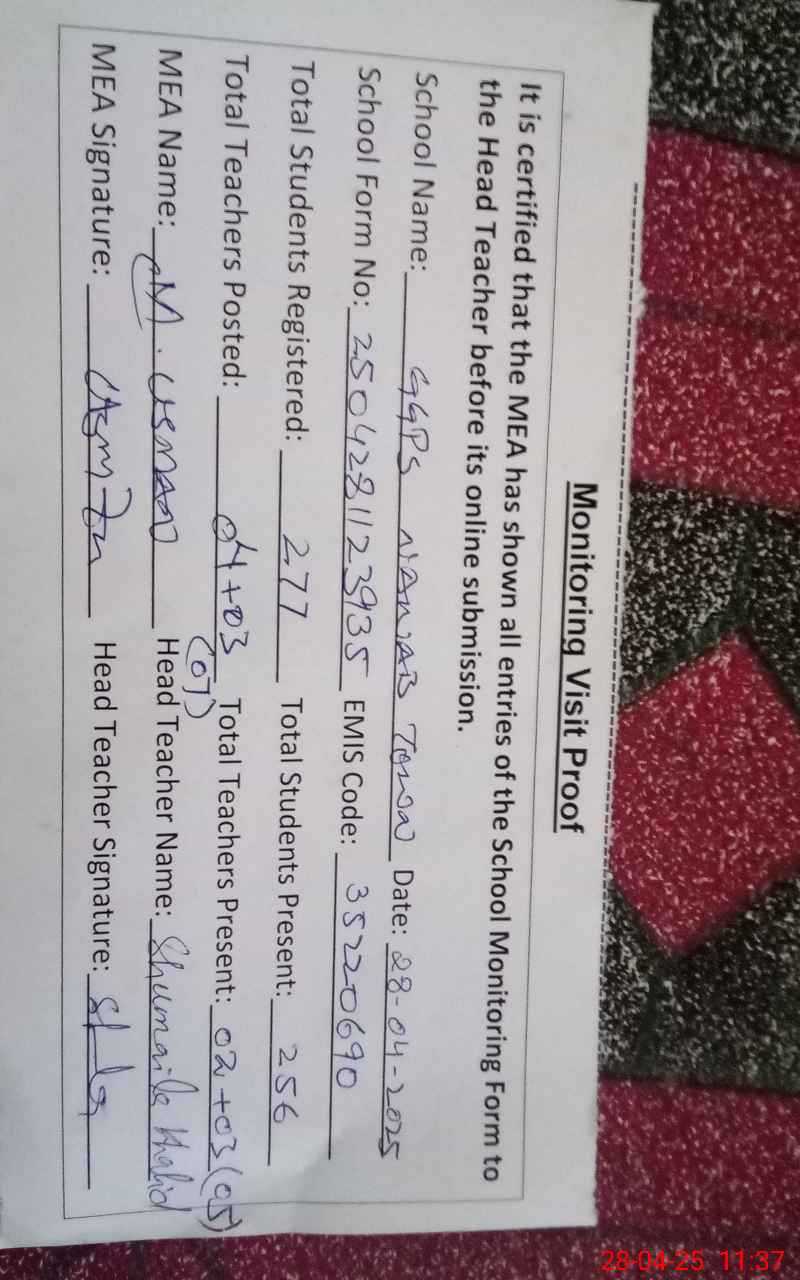 Monitoring Visit Proof
It is certified that the MEA has shown all entries of the School Monitoring Form to
the Head Teacher before its online submission.
School Name: GGPS NAWAB Town Date: 28-04-2025
School Form No: 2504281123935 EMIS Code: 35220690
Total Students Registered: 277 Total Students Present: 256
Total Teachers Posted: 04+03 (07) Total Teachers Present: 02+03(05)
MEA Name: M. USMAN Head Teacher Name: Shumaila Khalid
MEA Signature: Head Teacher Signature:
28-04-25 11:37